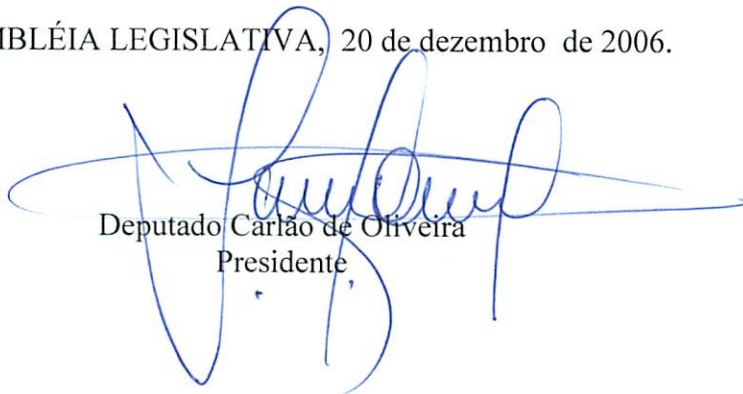 MBLÉIA LEGISLATIVA, 20 de dezembro de 2006.
Deputado Carlão de Oliveira
Presidente